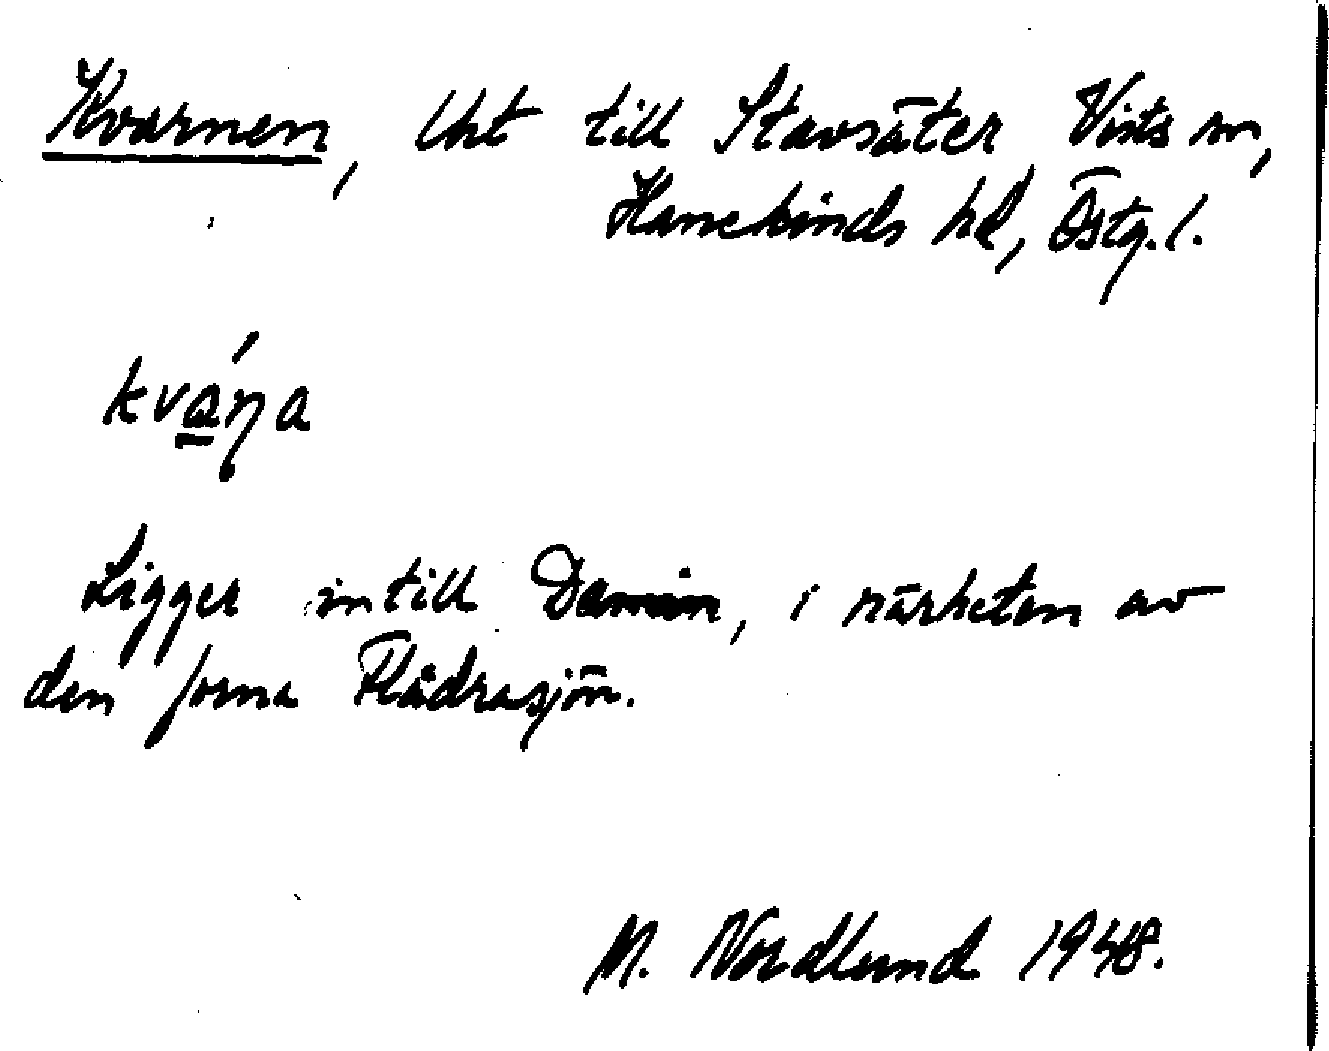 Kvarnen, lht till Stavsäter Vists sn,
Hanekinds hd, Östg. l.
kváɳa
Ligger intill Dammen, i närheten av
den forna Flådrasjön.
M. Nordlund 1948.